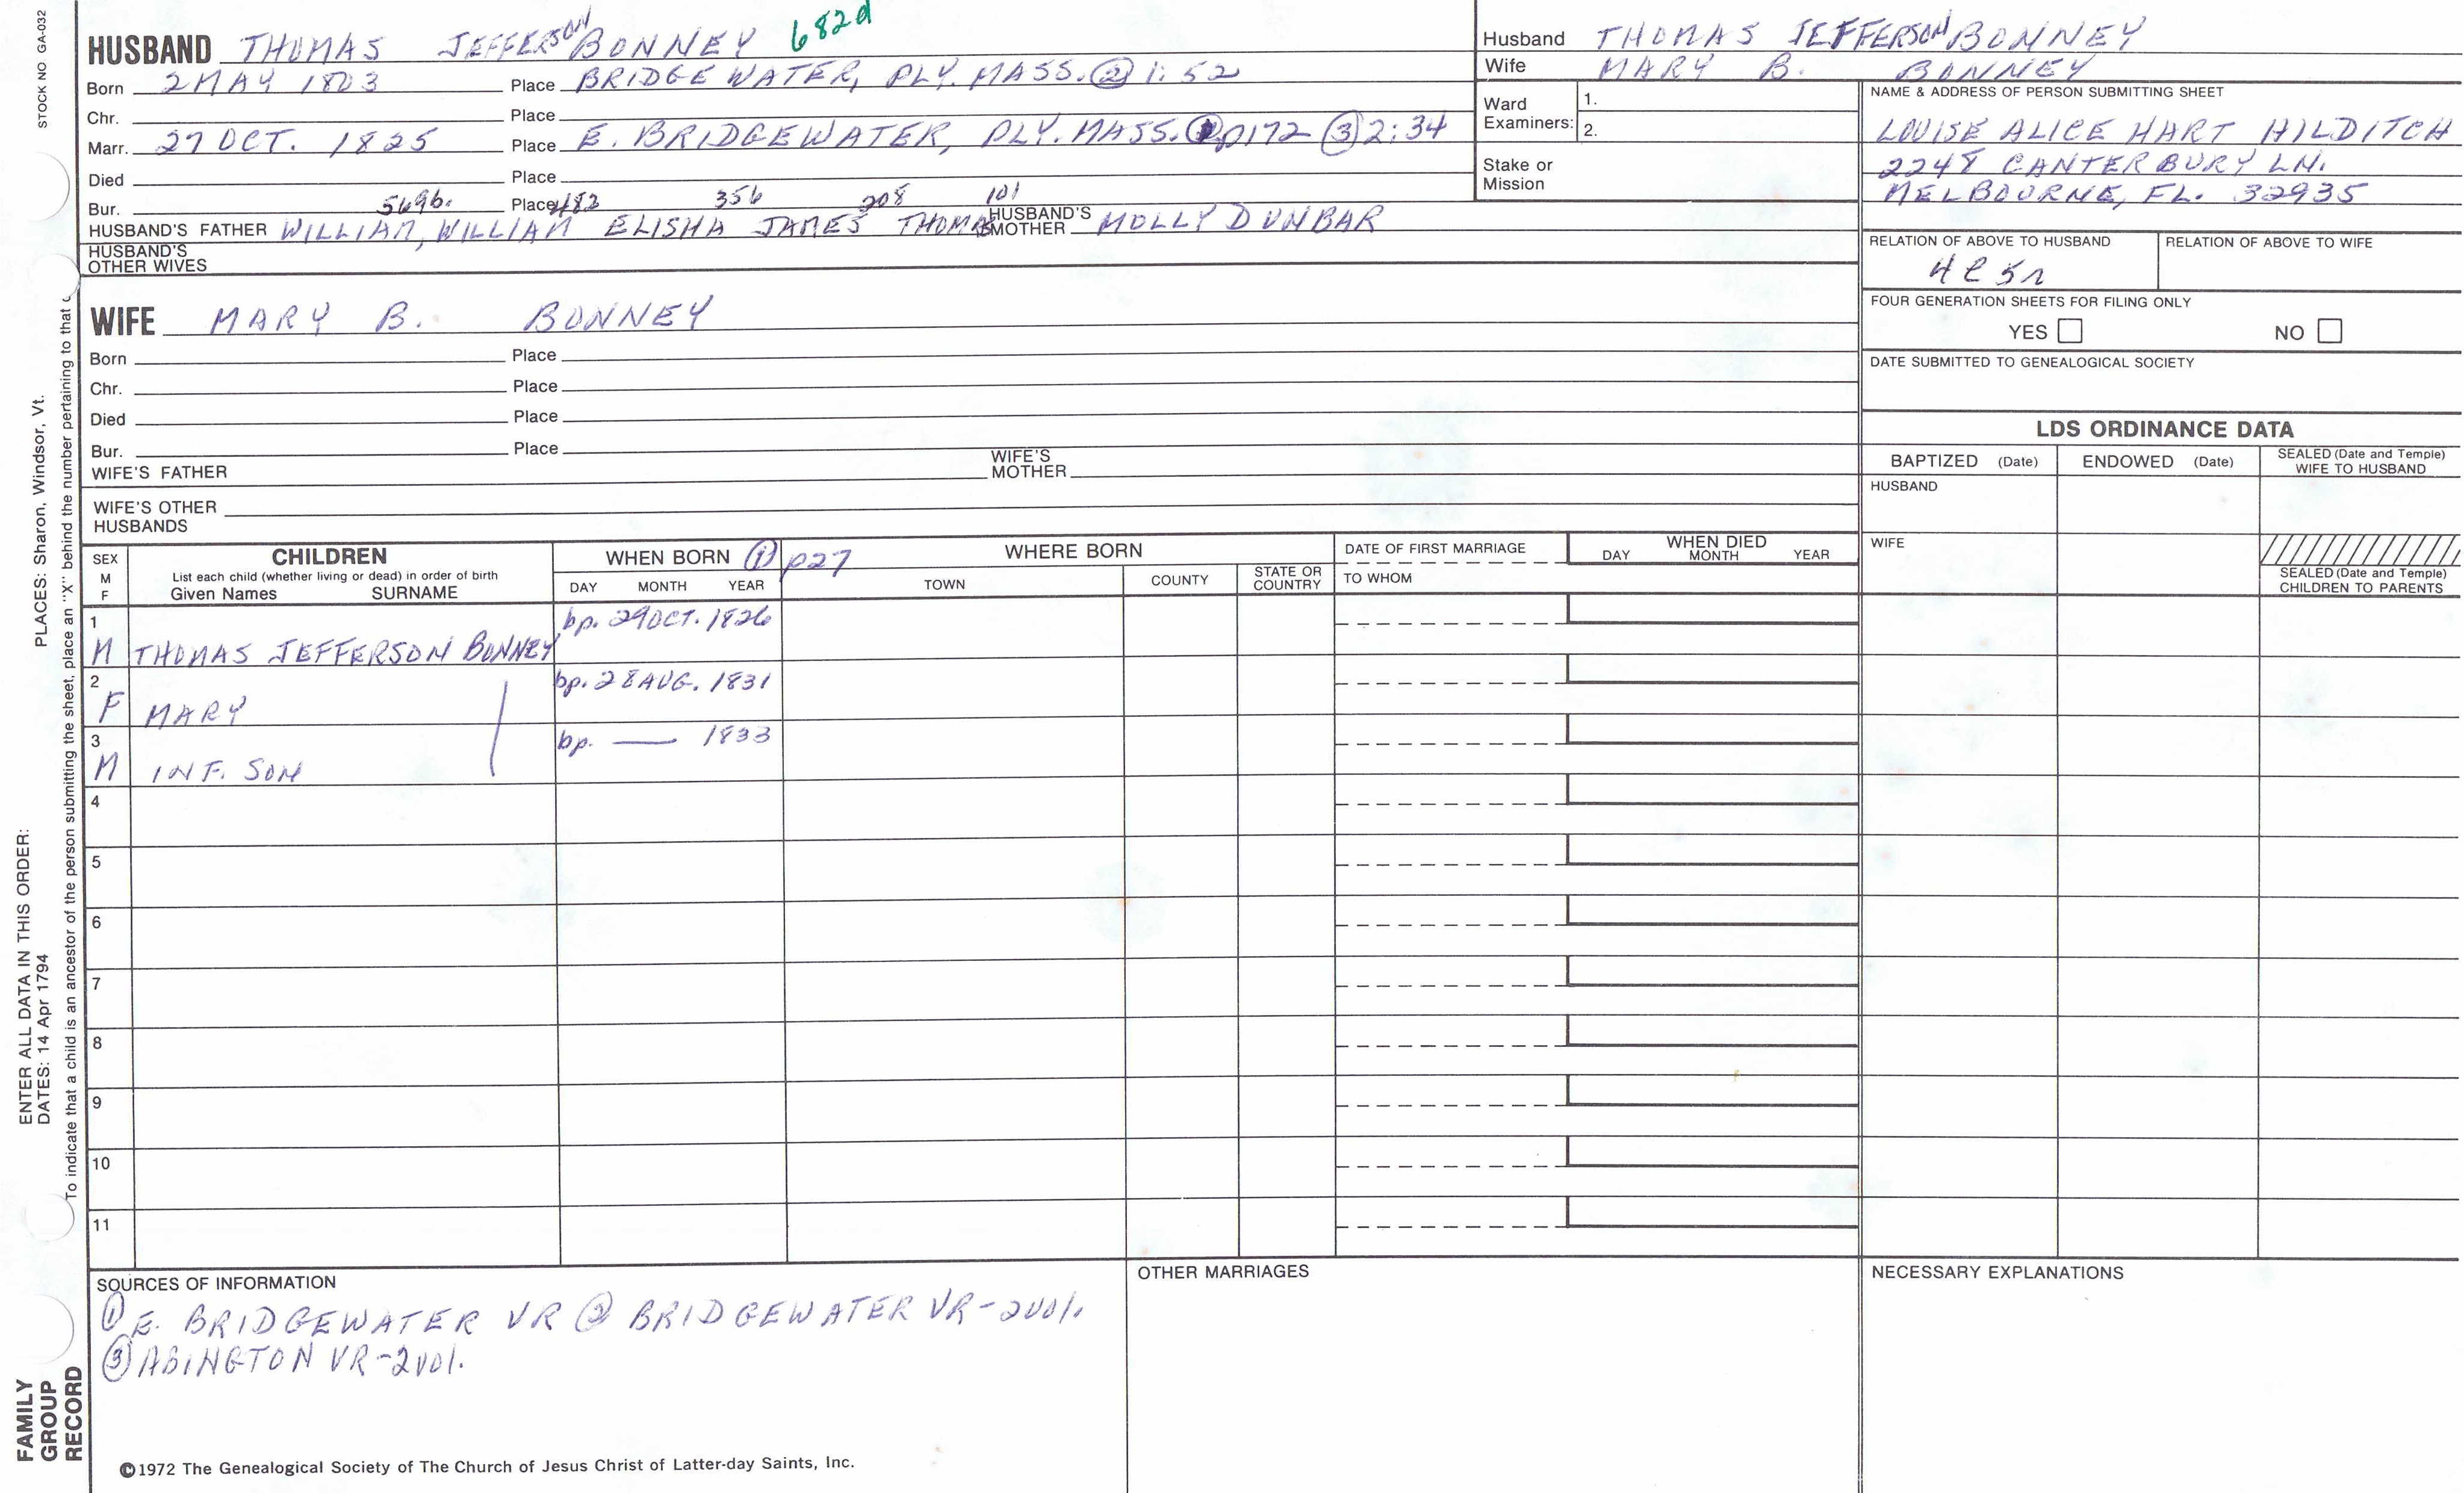 STOCK NO GA-032
HUSBAND THOMAS JEFFERSON BONNEY 682d
Born 2 MAY 1803 Place BRIDGEWATER, PLY. MASS. ② 1:52
Chr. Place
Marr. 27 OCT. 1825 Place E. BRIDGEWATER, PLY. MASS. ① p172 ③ 2:34
Died Place
Bur. 569b. Place 482 356 208 101
HUSBAND'S FATHER WILLIAM, WILLIAM ELISHA JAMES THOMAS HUSBAND'S MOTHER MOLLY DUNBAR
HUSBAND'S OTHER WIVES
Husband THOMAS JEFFERSON BONNEY
Wife MARY B. BONNEY
Ward Examiners: 1.
2.
Stake or Mission
NAME & ADDRESS OF PERSON SUBMITTING SHEET
LOUISE ALICE HART HILDITCH
2248 CANTERBURY LN.
MELBOURNE, FL. 32935
RELATION OF ABOVE TO HUSBAND RELATION OF ABOVE TO WIFE
4C5R
FOUR GENERATION SHEETS FOR FILING ONLY
YES NO
DATE SUBMITTED TO GENEALOGICAL SOCIETY
WIFE MARY B. BONNEY
Born Place
Chr. Place
Died Place
Bur. Place
WIFE'S FATHER WIFE'S MOTHER
WIFE'S OTHER HUSBANDS
LDS ORDINANCE DATA
BAPTIZED (Date) ENDOWED (Date) SEALED (Date and Temple) WIFE TO HUSBAND
HUSBAND
WIFE
SEALED (Date and Temple) CHILDREN TO PARENTS
SEX M F
CHILDREN
List each child (whether living or dead) in order of birth
Given Names SURNAME
WHEN BORN ① p27
DAY MONTH YEAR
WHERE BORN
TOWN COUNTY STATE OR COUNTRY
DATE OF FIRST MARRIAGE
TO WHOM
WHEN DIED
DAY MONTH YEAR
1 M THOMAS JEFFERSON BONNEY bp. 29 OCT. 1826
2 F MARY bp. 28 AUG. 1831
3 M INF. SON bp. — 1833
4
5
6
7
8
9
10
11
SOURCES OF INFORMATION
① E. BRIDGEWATER VR ② BRIDGEWATER VR-2vol.
③ ABINGTON VR-2vol.
OTHER MARRIAGES
NECESSARY EXPLANATIONS
©1972 The Genealogical Society of The Church of Jesus Christ of Latter-day Saints, Inc.
FAMILY GROUP RECORD
ENTER ALL DATA IN THIS ORDER:
DATES: 14 Apr 1794
PLACES: Sharon, Windsor, Vt.
To indicate that a child is an ancestor of the person submitting the sheet, place an "X" behind the number pertaining to that